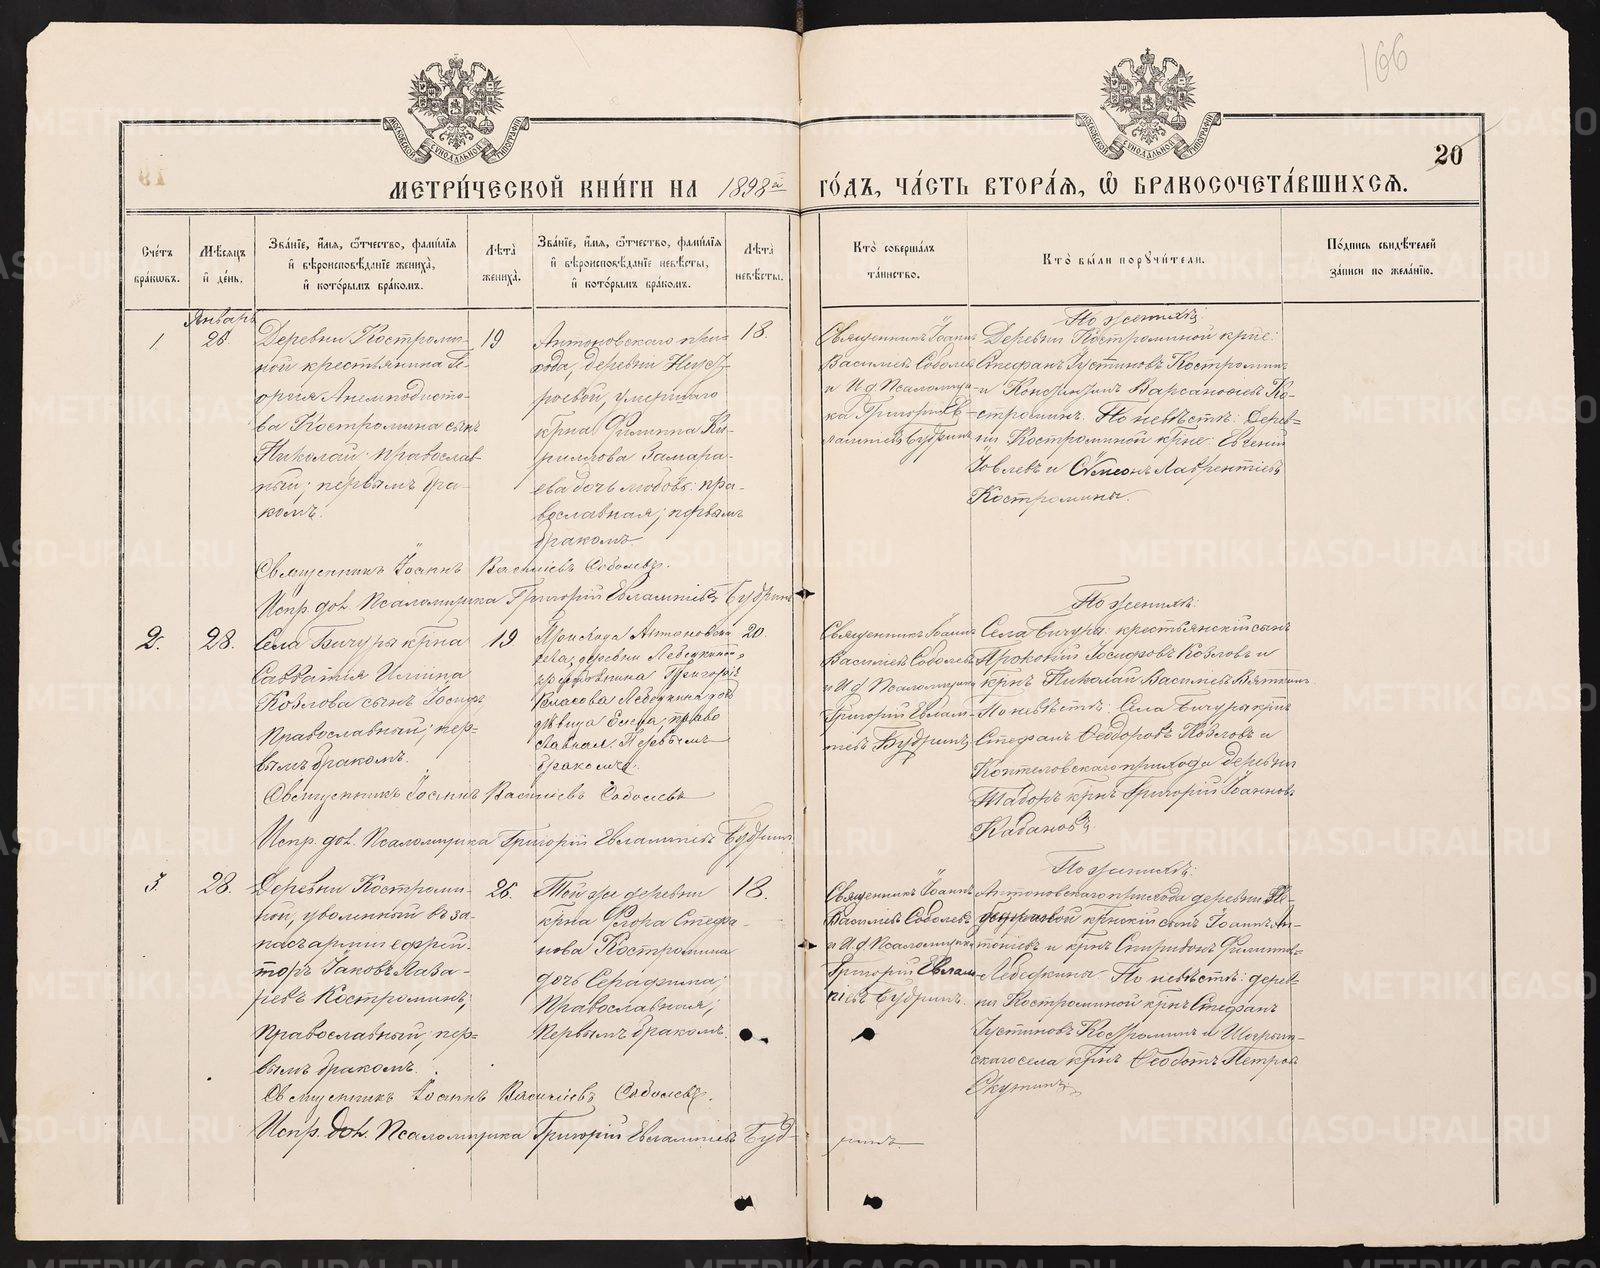 166
20
МЕТРИ́ЧЕСКОЙ КНИ́ГИ НА 1898 й ГО́ДЪ, ЧА́СТЬ ВТОРА́Я, Ѿ БРАКОСОЧЕТА́ВШИХСЯ.
Сче́тъ бра́кѡвъ.
Мѣ́сяцъ и҆ де́нь.
Зва́нїе, и҆́мя, ѻ҆́тчество, фамѝлїя
и҆ вѣроисповѣ́данїе жениха̀,
и҆ кото́рымъ бра́комъ.
Лѣта̀ жениха̀.
Зва́нїе, и҆́мя, ѻ҆́тчество, фамѝлїя
и҆ вѣроисповѣ́данїе невѣ́сты,
и҆ кото́рымъ бра́комъ.
Лѣта̀ невѣ́сты.
Кто̀ соверша́лъ та́инство.
Кто̀ бы́ли порꙋчи́тели.
По́дпись свидѣ́телей за́писи по жела́нїю.
Январь
1
28.
Деревни Костроми-
ной крестьянина Ге-
оргія Анемподисто-
ва Костромина сынъ
Николай православ-
ный; первымъ бра-
комъ.
19
Антоновскаго при-
хода, деревни
роевой, умершаго
крна Филиппа Ки-
риллова Замара-
ева дочь Любовь: пра-
вославная; первымъ
бракомъ.
18.
Священникъ Іоаннъ
Василіевъ Соболевъ
и И д Псаломщи-
ка Григорій Ев-
лампіевъ Будринъ
По женихѣ:
Деревни Костроминой крне:
Стефанъ Іустиновъ Костроминъ
и Константинъ Варсанофіевъ Ко-
строминъ. По невѣстѣ: Дерев-
ни Костроминой крне: Евгеній
Іовлевъ и Симеонъ Лаврентіевъ
Костромины.
Священникъ Іоаннъ Василіевъ Соболевъ.
Испр. дол. Псаломщика Григорій Евлампіевъ Будринъ
2.
28.
Села Бичуры крна
Савватія Иліина
Козлова сынъ Іосифъ
православный; пер-
вымъ бракомъ.
19
Прихода Антоновска
деревни Лебедкиной
Григорія
Власова Лебедкина дочь
дѣвица Елена; право
славная. Первымъ
бракомъ.
20.
Священникъ Іоаннъ
Василіевъ Соболевъ
и И д Псаломщика
Григорій Евлам-
піевъ Будринъ
По женихѣ:
Села Бичуры: крестьянскій сынъ
Прокопій Іосифовъ Козловъ и
крнъ Николай Василіевъ Вяткинъ
По невѣстѣ: Села Бичуры крнъ
Стефанъ Ѳеодоровъ Козловъ и
Коптеловскаго прихода деревни
крнъ Григорій Іоанновъ
Кабановъ.
Священникъ Іоаннъ Василіевъ Соболевъ
Испр. дол. Псаломщика Григорій Евлампіевъ Будринъ
3.
28.
Деревни Костроми-
ной, уволенный въ за-
пасъ арміи ефрей-
торъ Іаковъ Лаза-
ревъ Костроминъ;
православный; пер-
вымъ бракомъ.
26.
Той же деревни
крна Флора Стефа-
нова Костромина
дочь Серафима;
православная;
первымъ бракомъ.
18.
Священникъ Іоаннъ
Василіевъ Соболевъ
и И д Псаломщика
Григорій Евлам-
піевъ Будринъ.
По женихѣ:
Антоновскаго прихода деревни Ле-
бедкиной крнскій сынъ Іоаннъ Ан-
тоніевъ и крнъ Спиридонъ Филиппов
Лебедкины. По невѣстѣ: дерев-
ни Костроминой крнъ Стефанъ
Іустиновъ Костроминъ и
скаго села крнъ Ѳеодотъ Петровъ
Священникъ Іоаннъ Василіевъ Соболевъ.
Испр. дол. Псаломщика Григорій Евлампіевъ Буд- ринъ
METRIKI.GASO-URAL.RU